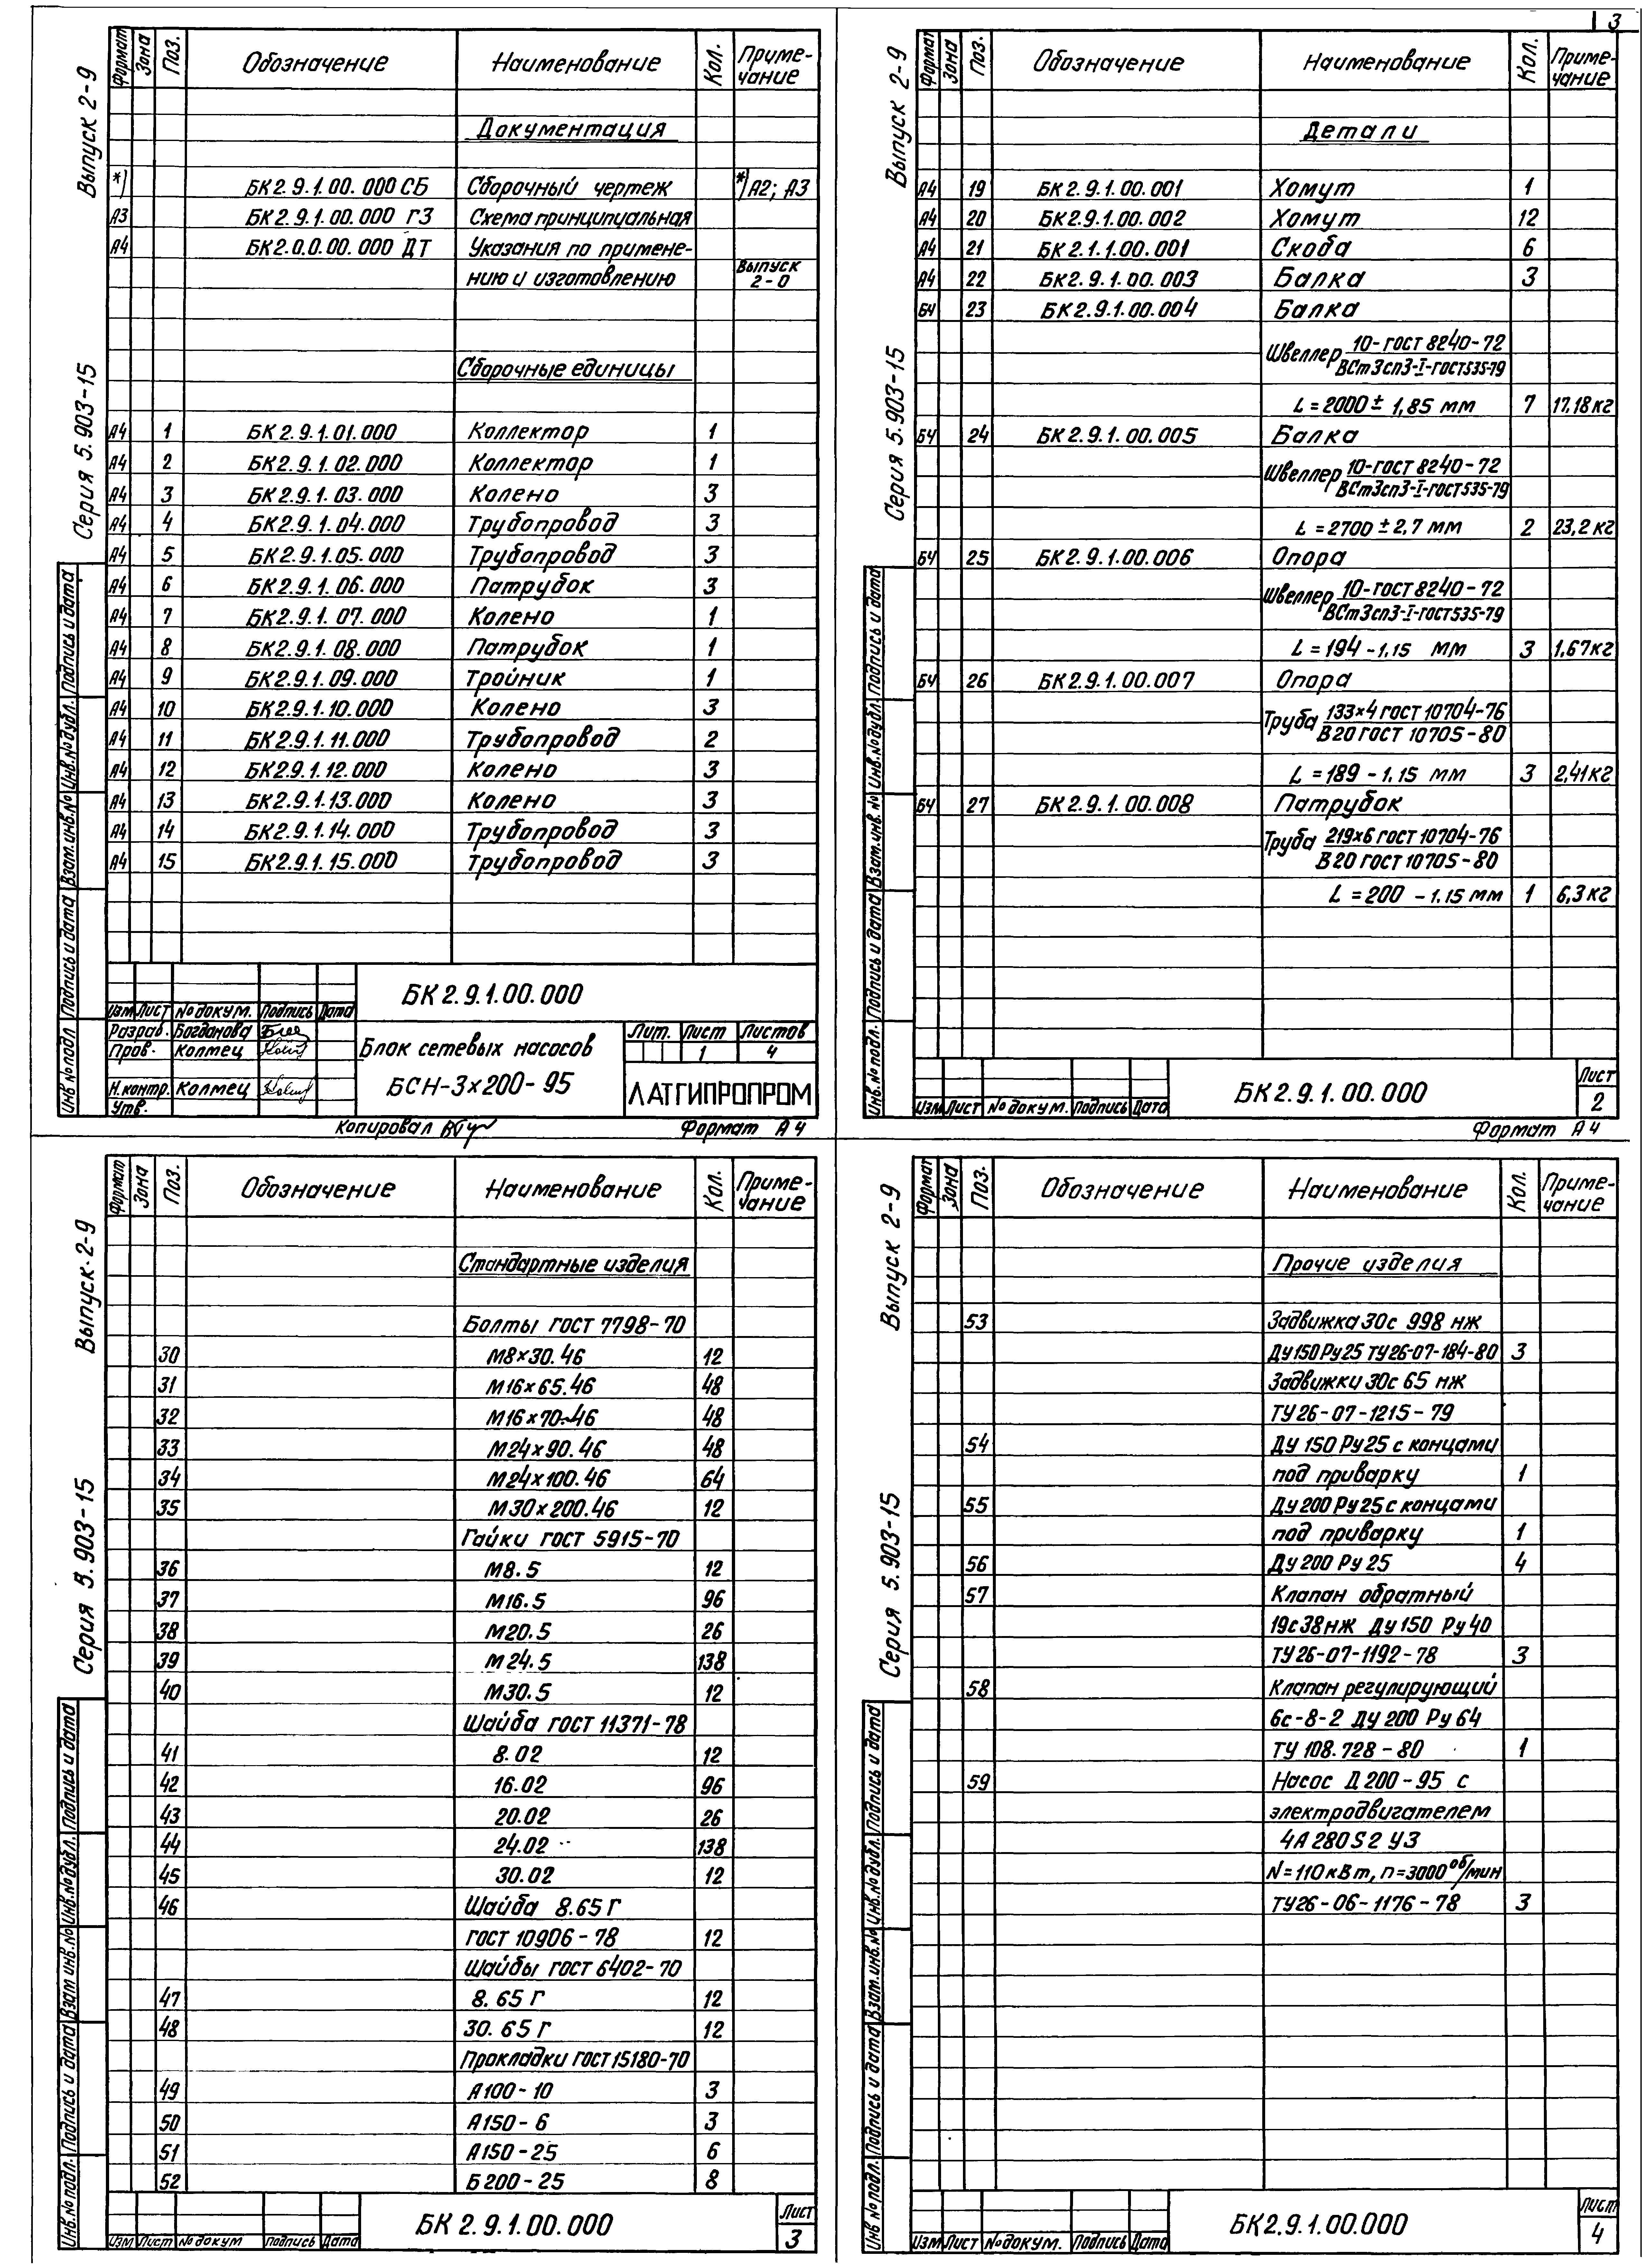 3
Выпуск 2-9
Серия 5.903-15
Формат Зона Поз. Обозначение Наименование Кол. Приме-
чание
Документация
*) БК2.9.1.00.000 СБ Сборочный чертеж *) А2; А3
А3 БК2.9.1.00.000 Г3 Схема принципуальная
А4 БК2.0.0.00.000 ДТ Указания по примене-
нию и изготовлению Выпуск
2-0
Сборочные единицы
А4 1 БК2.9.1.01.000 Коллектор 1
А4 2 БК2.9.1.02.000 Коллектор 1
А4 3 БК2.9.1.03.000 Колено 3
А4 4 БК2.9.1.04.000 Трубопровод 3
А4 5 БК2.9.1.05.000 Трубопровод 3
А4 6 БК2.9.1.06.000 Патрубок 3
А4 7 БК2.9.1.07.000 Колено 1
А4 8 БК2.9.1.08.000 Патрубок 1
А4 9 БК2.9.1.09.000 Тройник 1
А4 10 БК2.9.1.10.000 Колено 3
А4 11 БК2.9.1.11.000 Трубопровод 2
А4 12 БК2.9.1.12.000 Колено 3
А4 13 БК2.9.1.13.000 Колено 3
А4 14 БК2.9.1.14.000 Трубопровод 3
А4 15 БК2.9.1.15.000 Трубопровод 3
Инв.№ подл Подпись и дата Взам.инв.№ Инв.№ дубл. Подпись и дата
БК2.9.1.00.000
Изм Лист № докум. Подпись Дата
Разраб. Богданова
Пров. Колмец
Н.контр. Колмец
Утв.
Блок сетевых насосов
БСН-3×200-95
Лит. Лист Листов
1 4
ЛАТГИПРОПРОМ
Копировал Формат А4
Выпуск 2-9
Серия 5.903-15
Формат Зона Поз. Обозначение Наименование Кол. Приме-
чание
Детали
А4 19 БК2.9.1.00.001 Хомут 1
А4 20 БК2.9.1.00.002 Хомут 12
А4 21 БК2.1.1.00.001 Скоба 6
А4 22 БК2.9.1.00.003 Балка 3
БЧ 23 БК2.9.1.00.004 Балка
Швеллер 10-ГОСТ 8240-72
ВСт3сп3-I-ГОСТ535-79
L=2000± 1,85 мм 7 17,18кг
БЧ 24 БК2.9.1.00.005 Балка
Швеллер 10-ГОСТ 8240-72
ВСт3сп3-I-ГОСТ535-79
L=2700 ±2,7 мм 2 23,2кг
БЧ 25 БК2.9.1.00.006 Опора
Швеллер 10-ГОСТ 8240-72
ВСт3сп3-I-ГОСТ535-79
L=194 -1,15 мм 3 1,67кг
БЧ 26 БК2.9.1.00.007 Опора
Труба 133×4 ГОСТ 10704-76
В20 ГОСТ 10705-80
L=189 -1.15 мм 3 2,41кг
БЧ 27 БК2.9.1.00.008 Патрубок
Труба 219×6 ГОСТ 10704-76
В20 ГОСТ 10705-80
L=200 -1.15мм 1 6,3кг
Инв.№ подл. Подпись и дата Взам.инв.№ Инв.№ дубл. Подпись и дата
Изм Лист № докум. Подпись Дата
БК2.9.1.00.000
Лист
2
Формат А4
Выпуск.2-9
Серия 5.903-15
Формат Зона Поз. Обозначение Наименование Кол. Приме-
чание
Стандартные изделия
Болты ГОСТ 7798-70
30 М8×30.46 12
31 М16×65.46 48
32 М16×70.46 48
33 М24×90.46 48
34 М24×100.46 64
35 М30×200.46 12
Гайки ГОСТ 5915-70
36 М8.5 12
37 М16.5 96
38 М20.5 26
39 М24.5 138
40 М30.5 12
Шайба ГОСТ 11371-78
41 8.02 12
42 16.02 96
43 20.02 26
44 24.02 138
45 30.02 12
46 Шайба 8.65Г
ГОСТ 10906-78 12
Шайбы ГОСТ 6402-70
47 8.65Г 12
48 30.65Г 12
Прокладки ГОСТ15180-70
49 А100-10 3
50 А150-6 3
51 А150-25 6
52 Б200-25 8
Инв.№ подл. Подпись и дата Взам инв.№ Инв.№ дубл. Подпись и дата
Изм Лист № докум Подпись Дата
БК2.9.1.00.000
Лист
3
Выпуск 2-9
Серия 5.903-15
Формат Зона Поз. Обозначение Наименование Кол. Приме-
чание
Прочие изделия
53 Задвижка 30с 998 нж
Ду150Ру25 ТУ26-07-184-80 3
Задвижки 30с 65 нж
ТУ26-07-1215-79
54 Ду 150 Ру25 с концами
под приварку 1
55 Ду 200 Ру25 с концами
под приварку 1
56 Ду 200 Ру 25 4
57 Клапан обратный
19с38нж Ду150 Ру40
ТУ26-07-1192-78 3
58 Клапан регулирующий
6с-8-2 Ду 200 Ру 64
ТУ 108.728-80 1
59 Насос Д200-95 с
электродвигателем
4А280S2 У3
N=110кВт, n=3000 об/мин
ТУ26-06-1176-78 3
Инв № подл. Подпись и дата Взам.инв.№ Инв.№ дубл. Подпись и дата
Изм Лист № докум. Подпись Дата
БК2.9.1.00.000
Лист
4